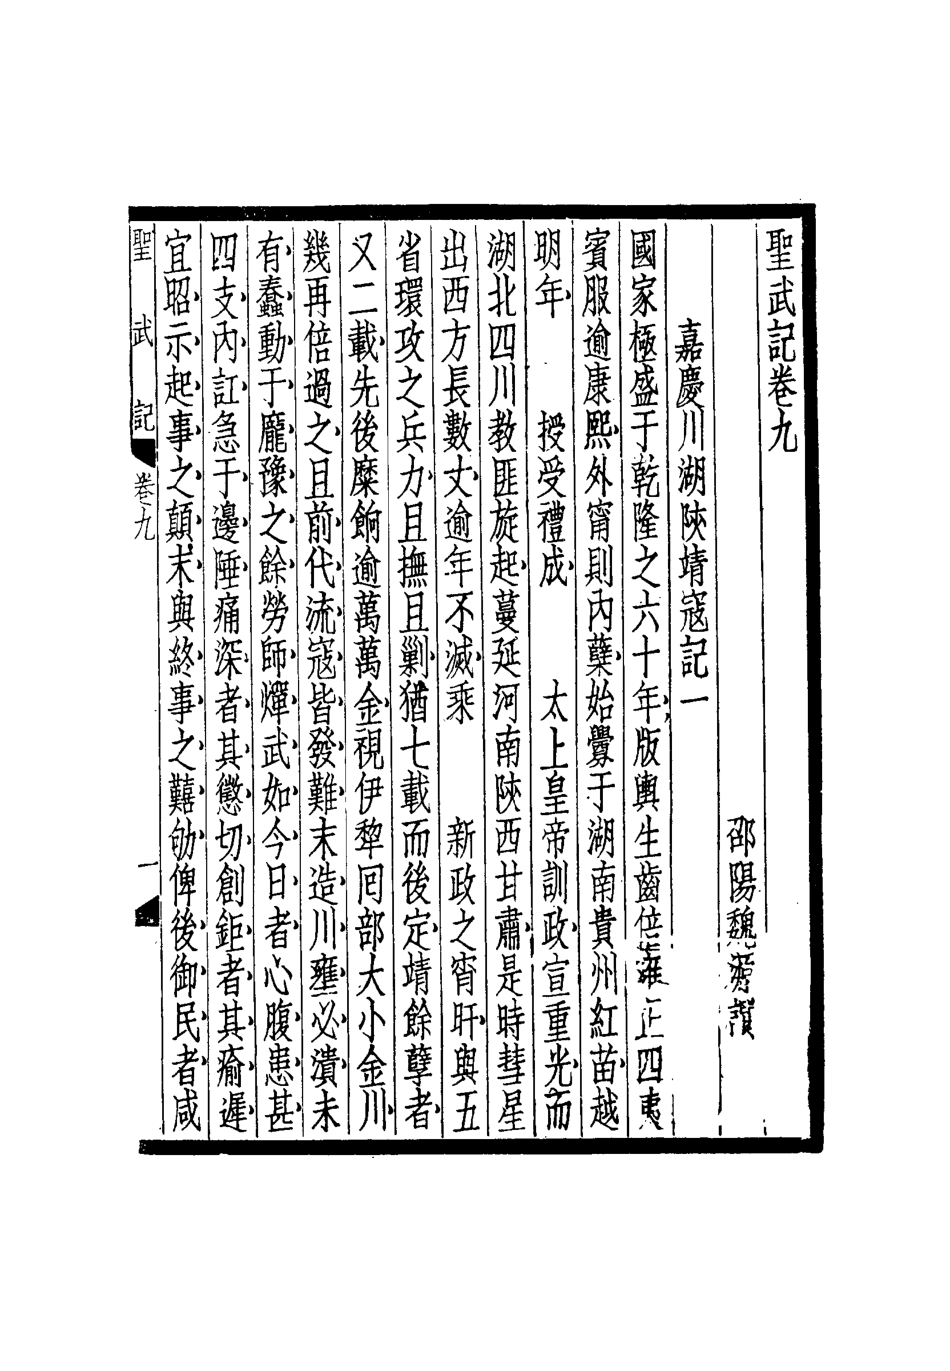 聖武記卷九
邵陽魏源譔
嘉慶川湖陝靖寇記一
國家極盛于乾隆之六十年版輿生齒倍雍正四夷
賓服逾康熙外甯則內孽始釁于湖南貴州紅苗越
明年　授受禮成　太上皇帝訓政宣重光而
湖北四川教匪旋起蔓延河南陝西甘肅是時彗星
出西方長數丈逾年不滅乘　新政之宵旰與五
省環攻之兵力且撫且剿猶七載而後定靖餘孽者
又二載先後糜餉逾萬萬金視伊犂回部大小金川
幾再倍過之且前代流寇皆發難末造川壅必潰未
有蠢動于龐豫之餘勞師燀武如今日者心腹患甚
四支內訌急于邊陲痛深者其懲切創鉅者其瘉遲
宜昭示起事之顛末與終事之囏劬俾後御民者咸
聖武記
卷九
一